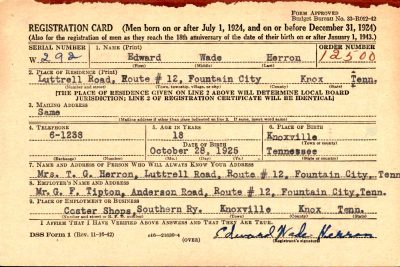 FORM APPROVED
Budget Bureau No. 33-R012-42
REGISTRATION CARD (Men born on or after July 1, 1924, and on or before December 31, 1924)
(Also for the registration of men as they reach the 18th anniversary of the date of their birth on or after January 1, 1943.)
SERIAL NUMBER 1. NAME (Print) ORDER NUMBER
W 292 Edward Wade Herron 12500
(First) (Middle) (Last)
2. PLACE OF RESIDENCE (Print)
Luttrell Road, Route # 12, Fountain City Knox Tenn.
(Number and street) (Town, township, village, or city) (County) (State)
[THE PLACE OF RESIDENCE GIVEN ON LINE 2 ABOVE WILL DETERMINE LOCAL BOARD
JURISDICTION; LINE 2 OF REGISTRATION CERTIFICATE WILL BE IDENTICAL]
3. MAILING ADDRESS
Same
[Mailing address if other than place indicated on line 2. If same, insert word same]
4. TELEPHONE 5. AGE IN YEARS 6. PLACE OF BIRTH
6-1238 18 Knoxville
DATE OF BIRTH (Town or county)
October 28, 1925 Tennessee
(Mo.) (Day) (Yr.) (State or country)
7. NAME AND ADDRESS OF PERSON WHO WILL ALWAYS KNOW YOUR ADDRESS
Mrs. T. G. Herron, Luttrell Road, Route # 12, Fountain City, Tenn
8. EMPLOYER'S NAME AND ADDRESS
Mr. G. F. Tipton, Anderson Road, Route # 12, Fountain City, Tenn.
9. PLACE OF EMPLOYMENT OR BUSINESS
Coster Shops, Southern Ry. Knoxville Knox Tenn.
(Number and street or R. F. D. number) (Town) (County) (State)
I AFFIRM THAT I HAVE VERIFIED ABOVE ANSWERS AND THAT THEY ARE TRUE.
DSS Form 1 (Rev. 11-16-42) (OVER) Edward Wade Herron
(Registrant's signature)